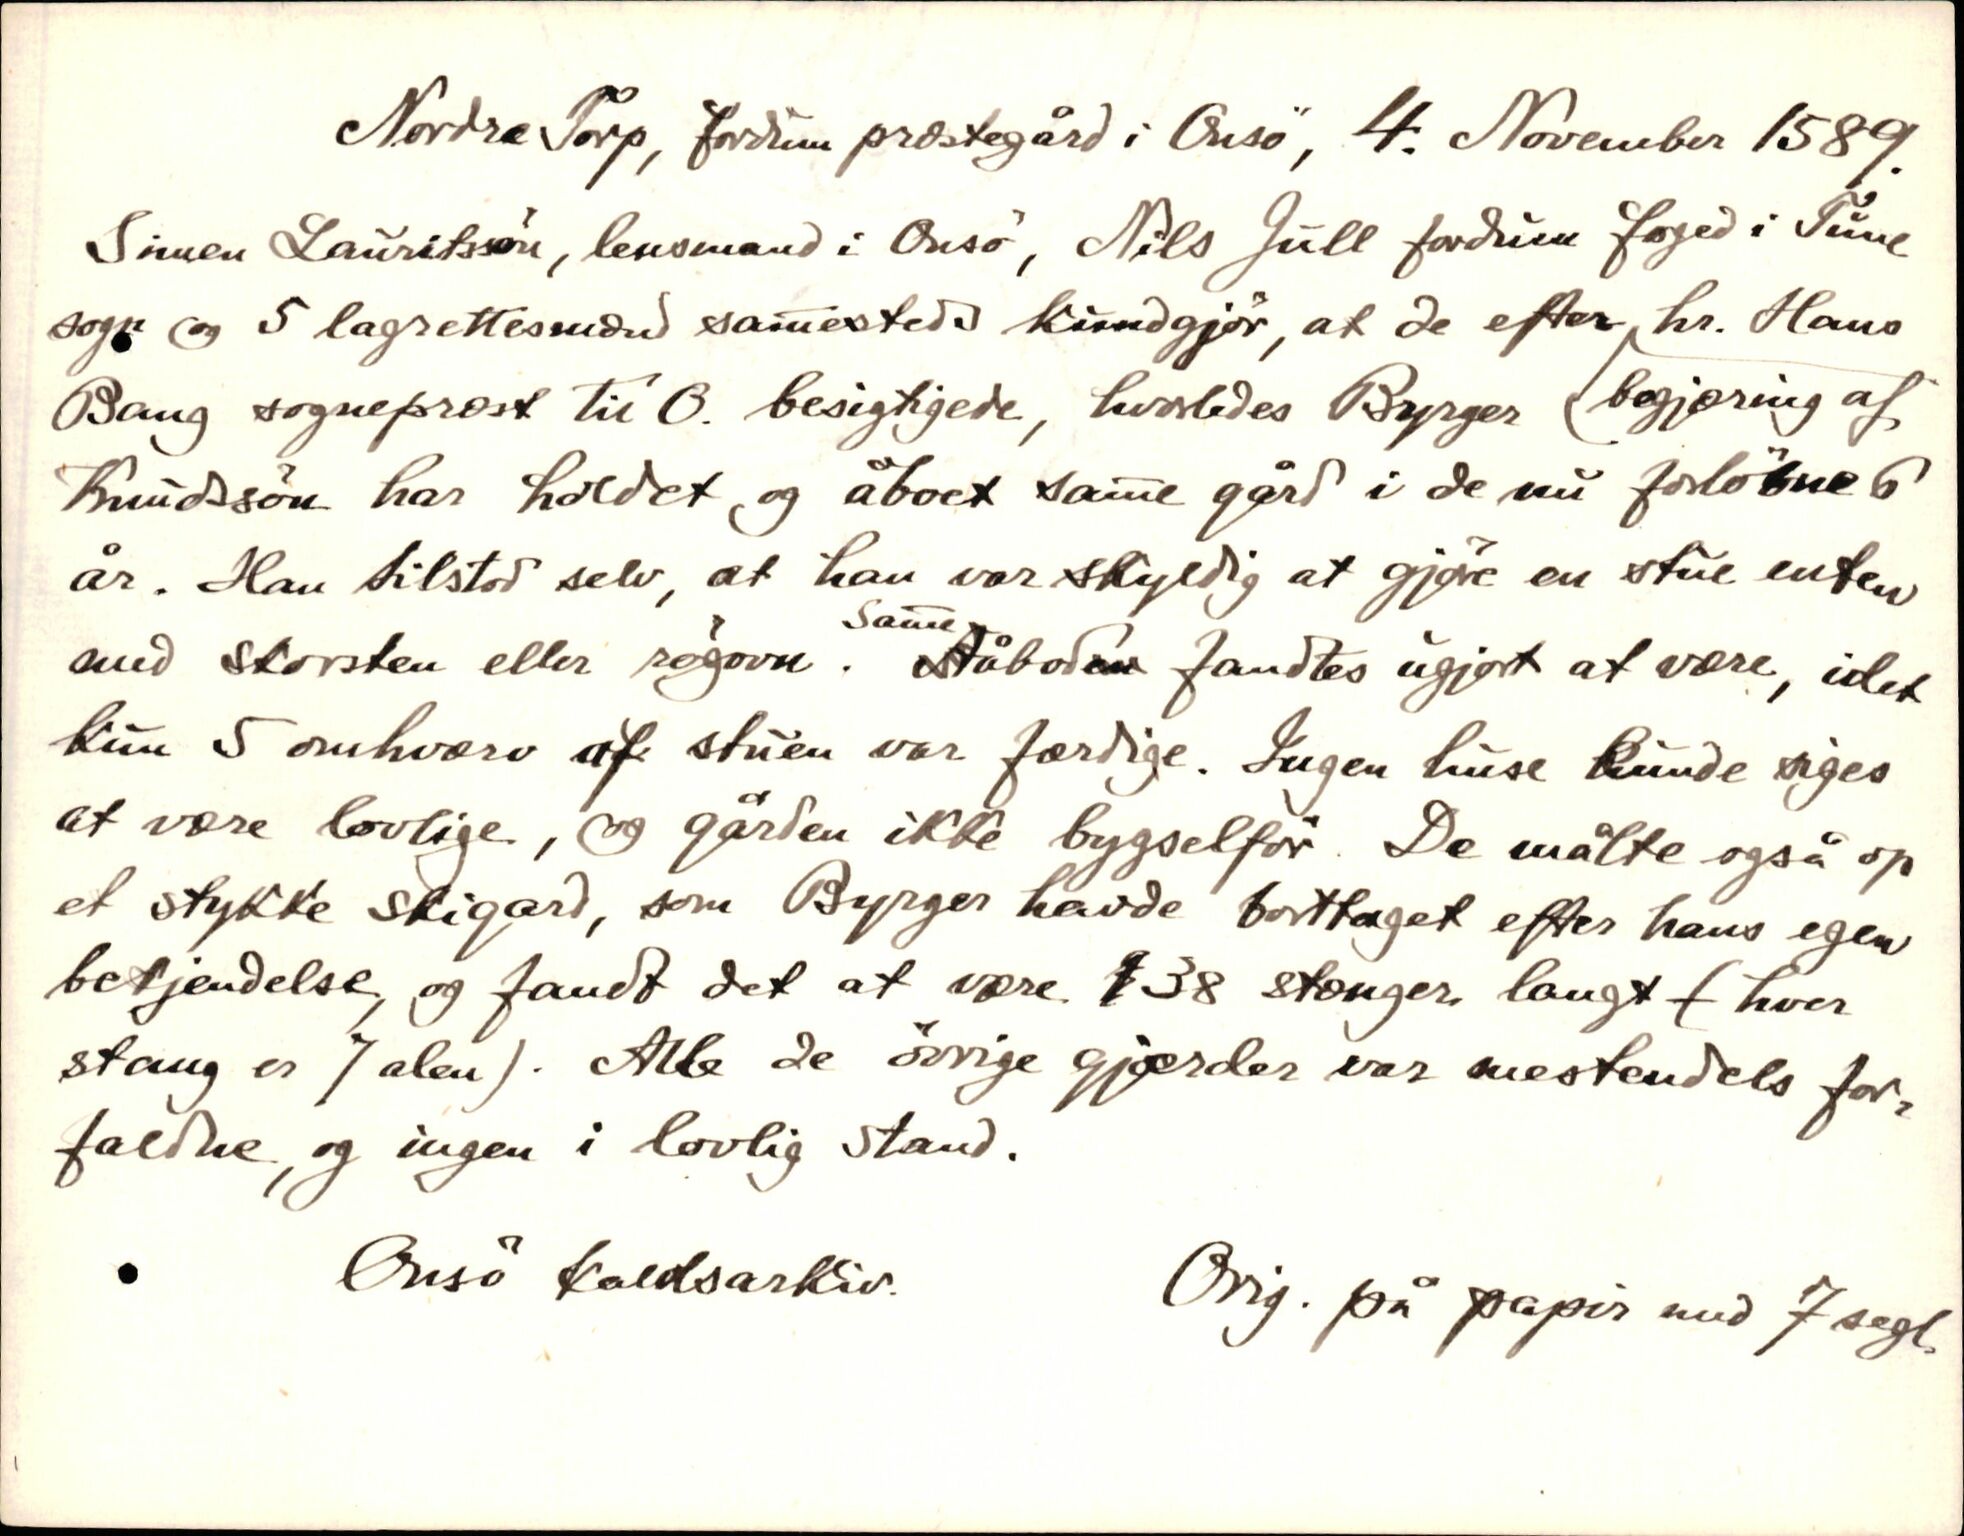 Nordre Torp, fordum præstegård i Onsö, 4. November 1589.
Simen Lauritssön, lensmand i Onsö, Nils Jull fordum foged i Tune
sogn og 5 lagrettesmænd sam̄esteds kundgjör, at de efter hr. Hans
Bang sogneprest til O. besigtigede, hvorledes Byrger (begjæring af
Knudssön har holdet og åboet sam̄e gård i de nu forlöbne 6
år. Han tilstod selv, at han var skyldig at gjöre en stue enten
med skorsten eller rögovn. Sam̄e åbodsv fandtes ugjort at være, idet
kun 5 omhværv af stuen var færdige. Ingen huse kunde siges
at være lovlige, og gården ikke bygselför. De målte også op
et stykke skigard, som Byrger havde borttaget efter hans egen
bekjendelse, og fandt det at være 38 stænger langt (hver
stang er 7 alen). Alle de övrige gjærder var mestendels for-
faldne, og ingen i lovlig stand.
Onsö kaldsarkiv. Orig. på papir med 7 segl.